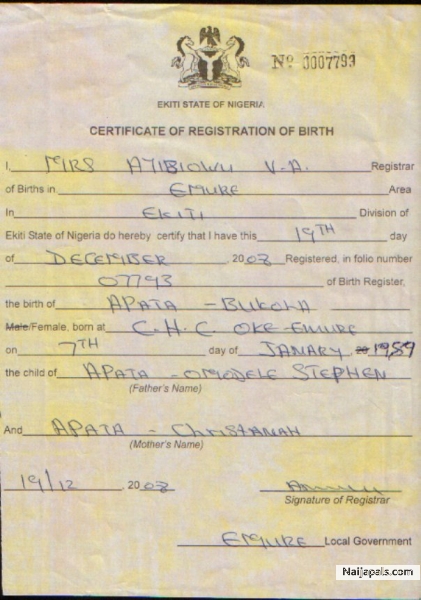 Nº 0007793
EKITI STATE OF NIGERIA
CERTIFICATE OF REGISTRATION OF BIRTH
I, MRS AJIBIOWU V-A. Registrar
of Births in EMURE Area
In EKITI Division of
Ekiti State of Nigeria do hereby certify that I have this 19TH day
of DECEMBER 2008 Registered, in folio number
07793 of Birth Register,
the birth of APATA - BUKOLA
Male/Female, born at C.H.C OKE-EMURE
on 7TH day of JANARY 20 1989
the child of APATA - OMODELE STEPHEN
(Father's Name)
And APATA - CHRISTANAH
(Mother's Name)
19/12 2008
Signature of Registrar
EMURE Local Government
Naijapals.com